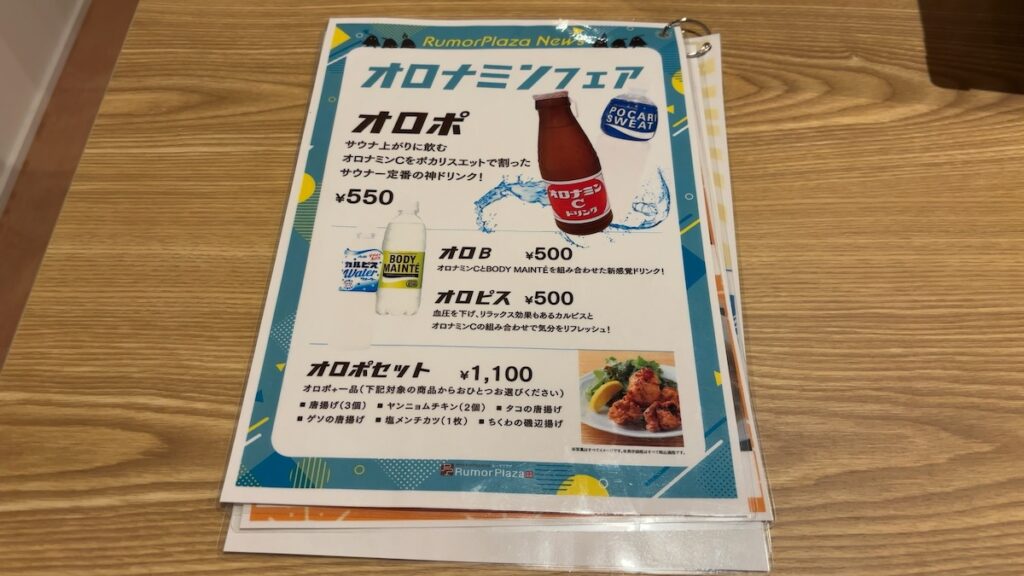 RumorPlaza News
オロナミンフェア
オロポ
サウナ上がりに飲む
オロナミンCをポカリスエットで割った
サウナー定番の神ドリンク!
¥550
POCARI
SWEAT
オロナミン
C
ドリンク
カルピス
Water
BODY
MAINTÉ
オロB ¥500
オロナミンCとBODY MAINTÉを組み合わせた新感覚ドリンク!
オロピス ¥500
血圧を下げ、リラックス効果もあるカルピスと
オロナミンCの組み合わせで気分をリフレッシュ!
オロポセット ¥1,100
オロポ+一品(下記対象の商品からおひとつお選びください)
■ 唐揚げ(3個) ■ ヤンニョムチキン(2個) ■ タコの唐揚げ
■ ゲソの唐揚げ ■ 塩メンチカツ(1枚) ■ ちくわの磯辺揚げ
※写真はすべてイメージです。※表示価格はすべて税込価格です。
RumorPlaza